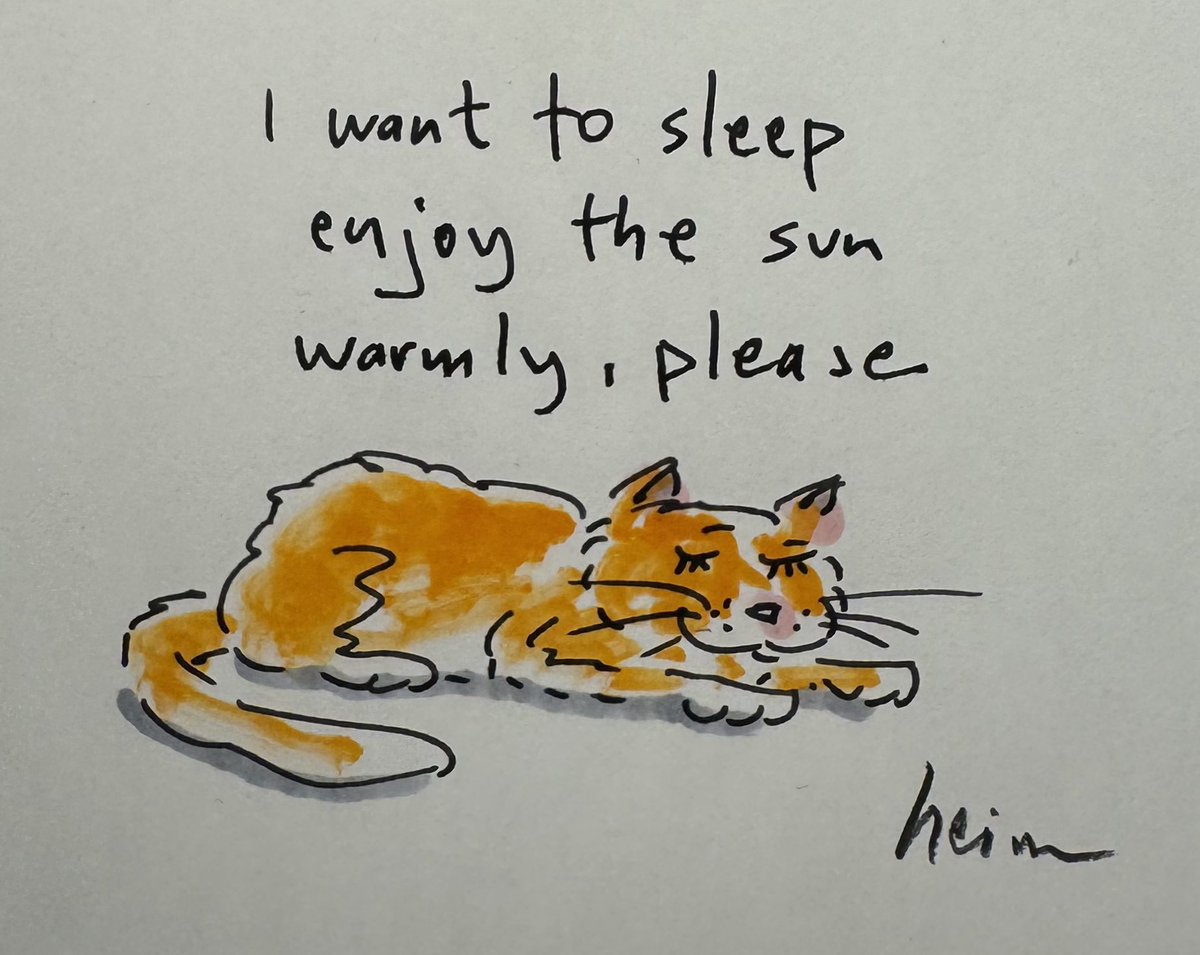 I want to sleep
enjoy the sun
warmly, please
heim